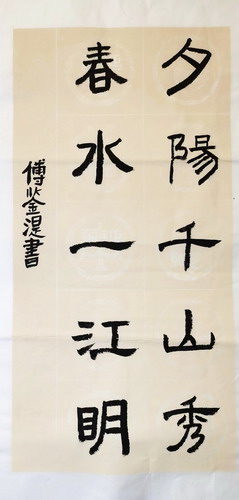 夕陽千山秀
春水一江明
傅蓥金湜書